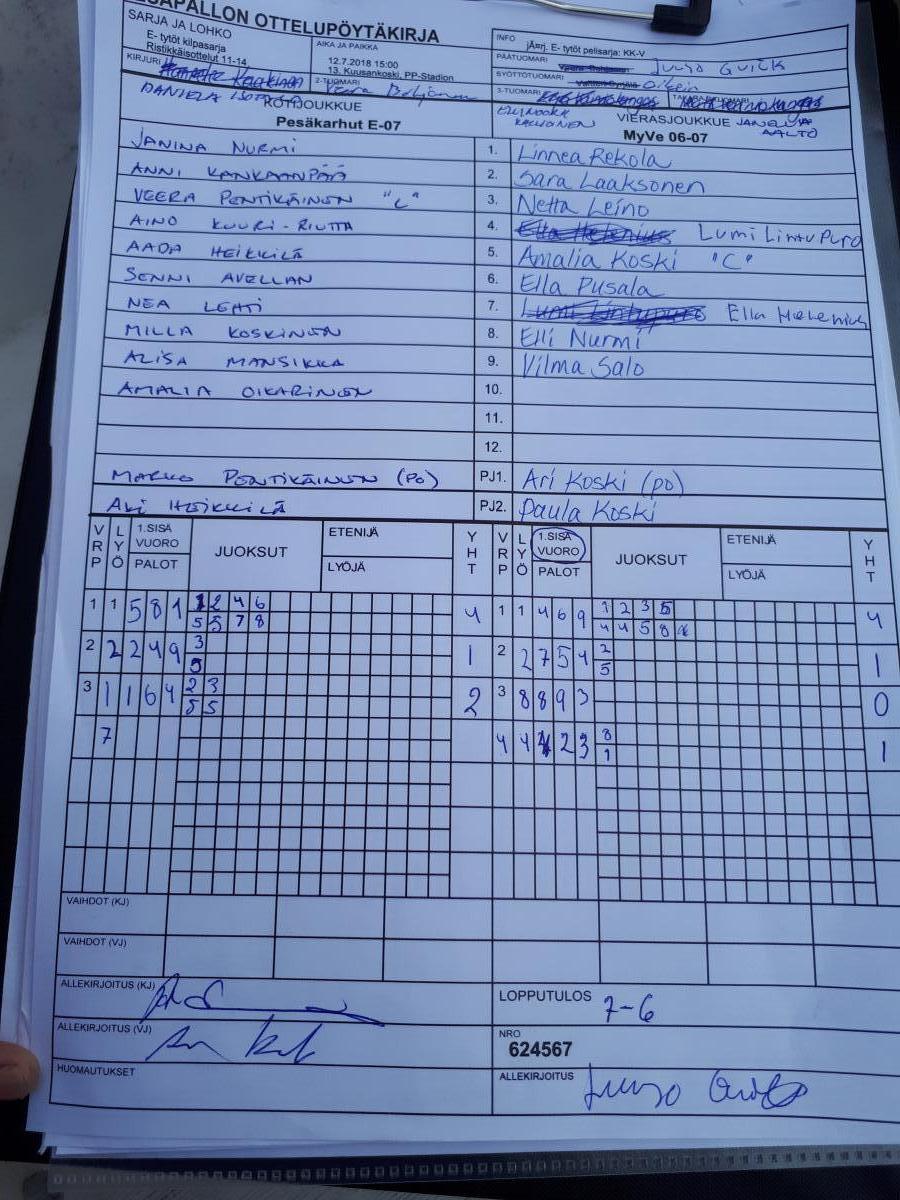 SAPALLON OTTELUPÖYTÄKIRJA
SARJA JA LOHKO
E- tytöt kilpasarja
Ristikkäisottelut 11-14
AIKA JA PAIKKA
12.7.2018 15:00
13. Kuusankoski, PP-Stadion
INFO
jÄrrj. E- tytöt pelisarja: KK-V
PÄÄTUOMARI
KIRJURI
2-TUOMARI
SYÖTTÖTUOMARI
3-TUOMARI
DANIELA
KOTIJOUKKUE
Pesäkarhut E-07
VIERASJOUKKUE
MyVe 06-07
JANELLA AALTO
JANINA NURMI 1. Linnea Rekola
ANNI KANKAANPÄÄ 2. Sara Laaksonen
VEERA PENTIKÄINEN "C" 3. Netta Leino
AINO KUURI-RIUTTA 4. Ella Helenius Lumi Lintupuro
AADA HEIKKILÄ 5. Amalia Koski "C"
SENNI AVELLAN 6. Ella Pusala
NEA LEHTI 7. Lumi Lintupuro Ella Helenius
MILLA KOSKINEN 8. Elli Nurmi
ALISA MANSIKKA 9. Vilma Salo
AMALIA OIKARINEN 10.
11.
12.
MARKO PENTIKÄINEN (PO) PJ1. Ari Koski (po)
AKI HEIKKILÄ PJ2. Paula Koski
VRP LYÖ 1.SISÄ VUORO PALOT JUOKSUT ETENIJÄ LYÖJÄ YHT VRP LYÖ 1.SISÄ VUORO PALOT JUOKSUT ETENIJÄ LYÖJÄ YHT
1 1 5 8 1 1 2 4 6 4 1 1 4 6 9 1 2 3 5 4
5 5 7 8 4 4 5 8
2 2 2 4 9 3 1 2 2 7 5 4 2 1
5 5
3 1 1 6 4 2 3 2 3 8 8 9 3 0
5 5
7 4 4 1 2 3 8 1
1
VAIHDOT (KJ)
VAIHDOT (VJ)
ALLEKIRJOITUS (KJ)
LOPPUTULOS 7-6
ALLEKIRJOITUS (VJ)
NRO
624567
HUOMAUTUKSET
ALLEKIRJOITUS